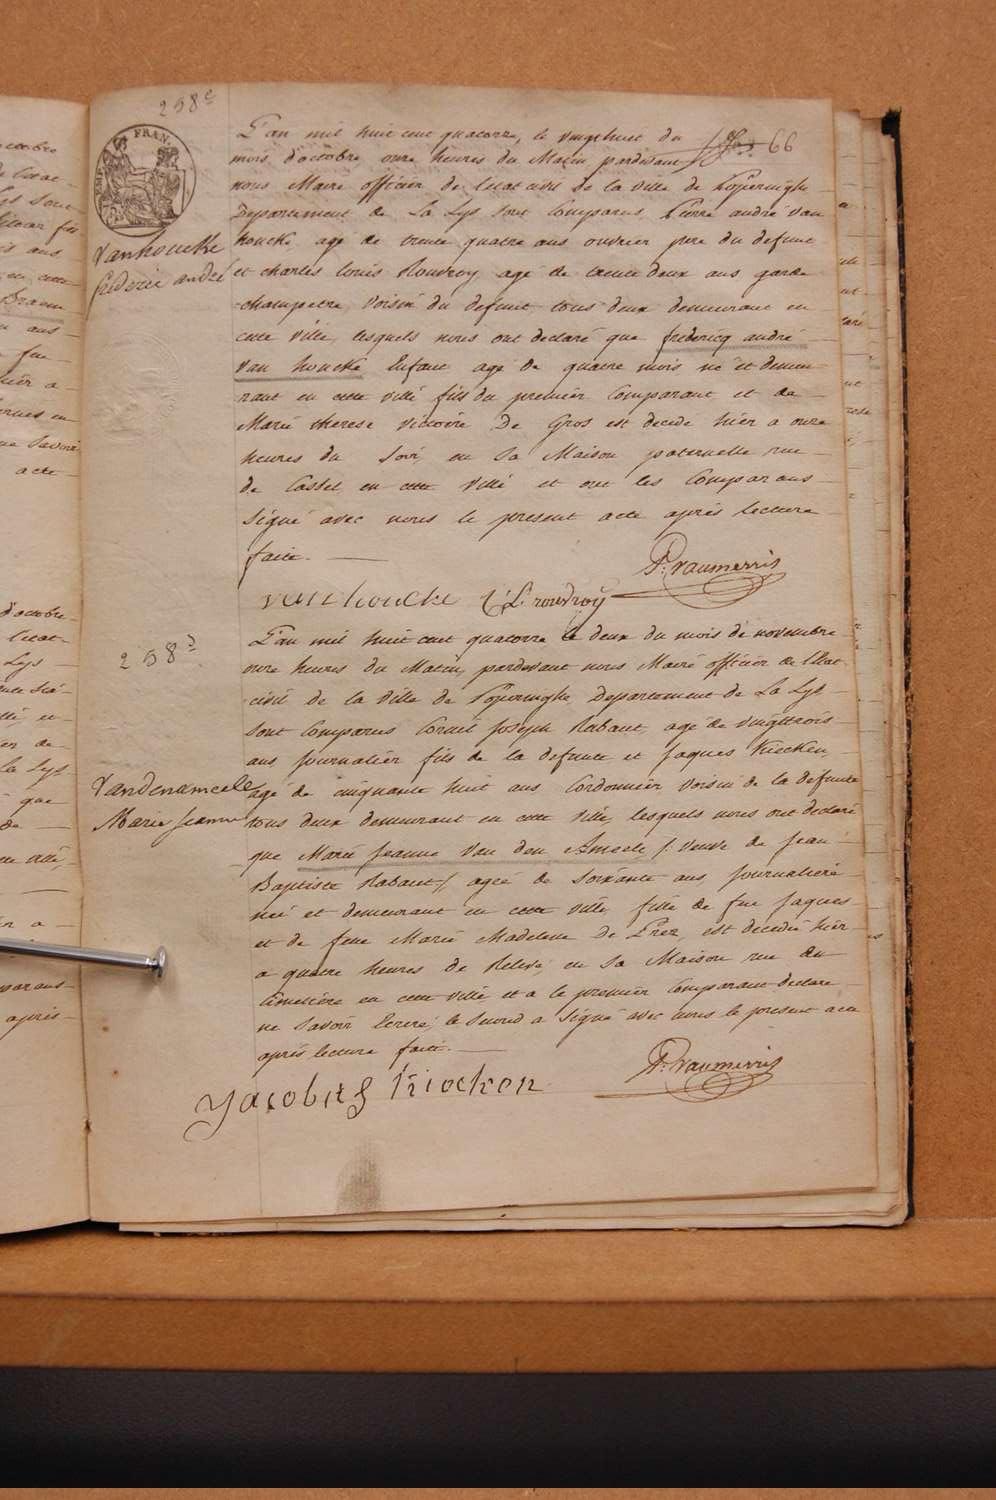 258e
FRAN.
66
Vanhoucke
frederic andré
L'an mil huit cent quatorze, le vingthuit du
mois d'octobre onze heures du Matin pardevant
nous Maire officier de l'etat civil de la ville de Poperinghe
Departement de La Lys sont Comparus, Pierre andré van
houcke, agé de trente quatre ans ouvrier pere du defunt
et charles louis Rouvroy agé de trente deux ans garde
champetre, Voisin du defunt tous deux demeurant en
cette ville, lesquels nous ont declaré que fredericq andré
Van houcke Enfant agé de quatre mois né et demeu-
rant en cette ville fils du premier Comparant et de
Marie therese victoire De Gros est decede hier a onze
heures du soir, en sa Maison paternelle rue
de Cassel en cette ville et ont les Comparans
signé avec nous le present acte après lecture
faite.
P. vanmerris
vanhoucke C. L. rouvroy
258
Vandenameele
Marie Jeanne
L'an mil huit cent quatorze le deux du mois de novembre
onze heures du Matin, pardevant nous Maire officier de l'Etat
civil de la ville de Poperinghe Departement de La Lys
sont Comparus Corneil Joseph Rabaut, agé de vingttrois
ans Journalier fils de la defunte et Jaques Kiecken,
agé de cinquante huit ans Cordonnier, voisin de la defunte
tous deux demeurant en cette ville, lesquels nous ont declaré
que Marie Jeanne Van den Ameele / veuve de Jean
Baptiste Rabaut / agée de soixante ans, Journaliere
née et demeurant en cette ville, fille de feu Jaques
et de feue Marie Madelene De Prez, est decedée hier
a quatre heures de Relevé, en sa Maison rue du
Cimetière en cette ville, et a le premier Comparant declare
ne savoir Ecrire, le second a signé avec nous le present acte
après lecture faite.
P. vanmerris
Jacobus Kiecken